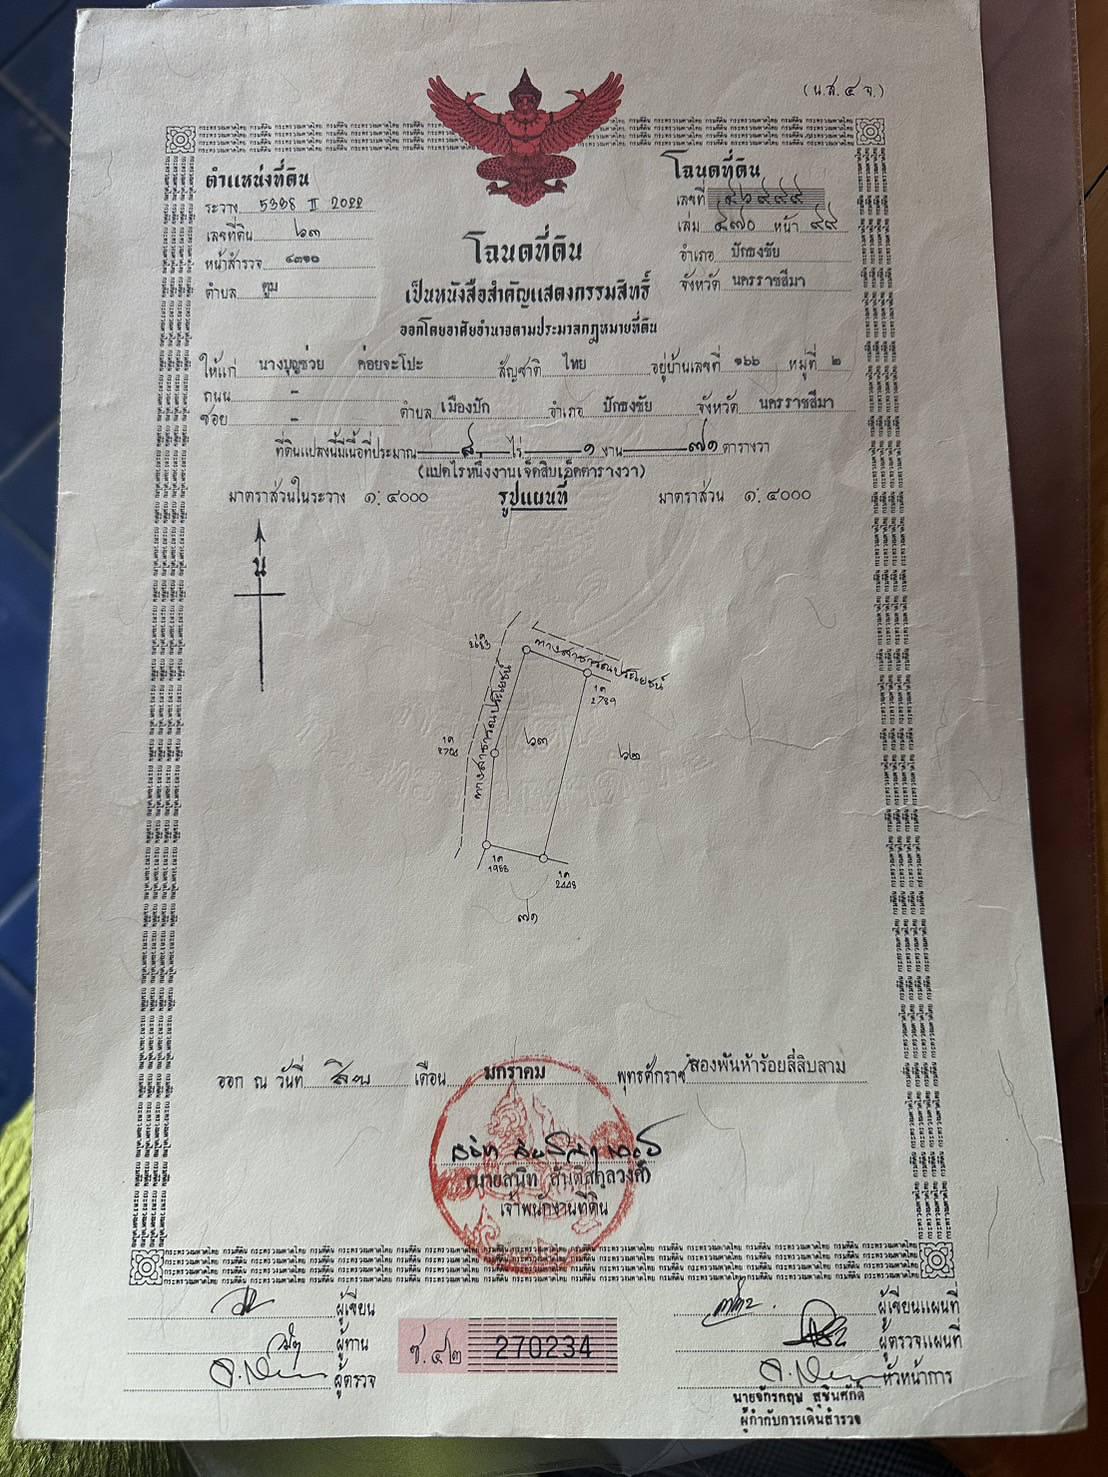 (น.ส.๔ จ.)
ตำแหน่งที่ดิน
ระวาง 5338 II 2022
เลขที่ดิน ๖๓
หน้าสำรวจ ๔๓๑๐
ตำบล ตูม
โฉนดที่ดิน
เลขที่
เล่ม ๔๗๐ หน้า ๙๙
อำเภอ ปักธงชัย
จังหวัด นครราชสีมา
โฉนดที่ดิน
เป็นหนังสือสำคัญแสดงกรรมสิทธิ์
ออกโดยอาศัยอำนาจตามประมวลกฎหมายที่ดิน
ให้แก่ นางบุญช่วย ค่อยจะโปะ สัญชาติ ไทย อยู่บ้านเลขที่ ๑๖๖ หมู่ที่ ๒
ถนน -
ซอย - ตำบล เมืองปัก อำเภอ ปักธงชัย จังหวัด นครราชสีมา
ที่ดินแปลงนี้มีเนื้อที่ประมาณ ๘ ไร่ ๑ งาน ๗๑ ตารางวา
(แปดไร่หนึ่งงานเจ็ดสิบเอ็ดตารางวา)
มาตราส่วนในระวาง ๑:๔๐๐๐ รูปแผนที่ มาตราส่วน ๑:๔๐๐๐
น
ทางสาธารณประโยชน์
1ค
2789
ทางสาธารณประโยชน์
๖๓
๖๒
1ค
1ค
1ค
๗๑
ออก ณ วันที่ สิบ เดือน มกราคม พุทธศักราช สองพันห้าร้อยสี่สิบสาม
(นายสนิท สันติสกุลวงศ์)
เจ้าพนักงานที่ดิน
ผู้เขียน
ผู้ทาน
ผู้ตรวจ
ช.๔๒ 270234
ผู้เขียนแผนที่
ผู้ตรวจแผนที่
หัวหน้าการ
นายจักรกฤษ สุชินศักดิ์
ผู้กำกับการเดินสำรวจ